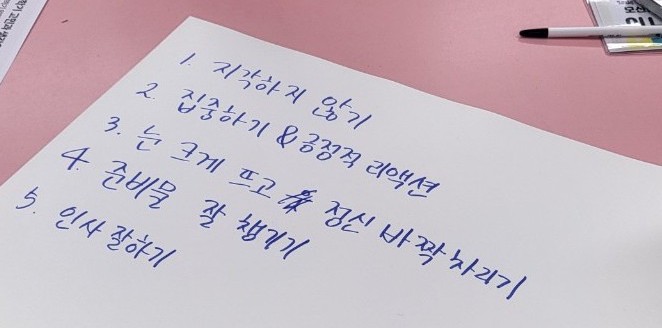 1. 지각하지 않기
2. 집중하기 & 긍정적 리액션
3. 눈 크게 뜨고 정신 바짝 차리기
4. 준비물 잘 챙기기
5. 인사 잘하기